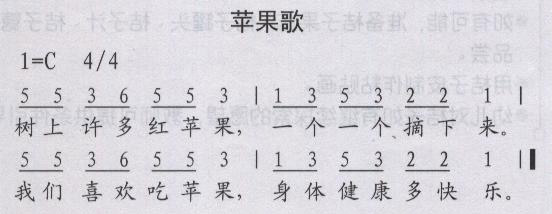 苹果歌
1=C 4/4
5 5 3 6 5 5 3 | 1 3 5 3 2 2 1 |
树上许多红苹果，一个一个摘下来。
5 5 3 6 5 5 3 | 1 3 5 3 2 2 1 ‖
我们喜欢吃苹果，身体健康多快乐。